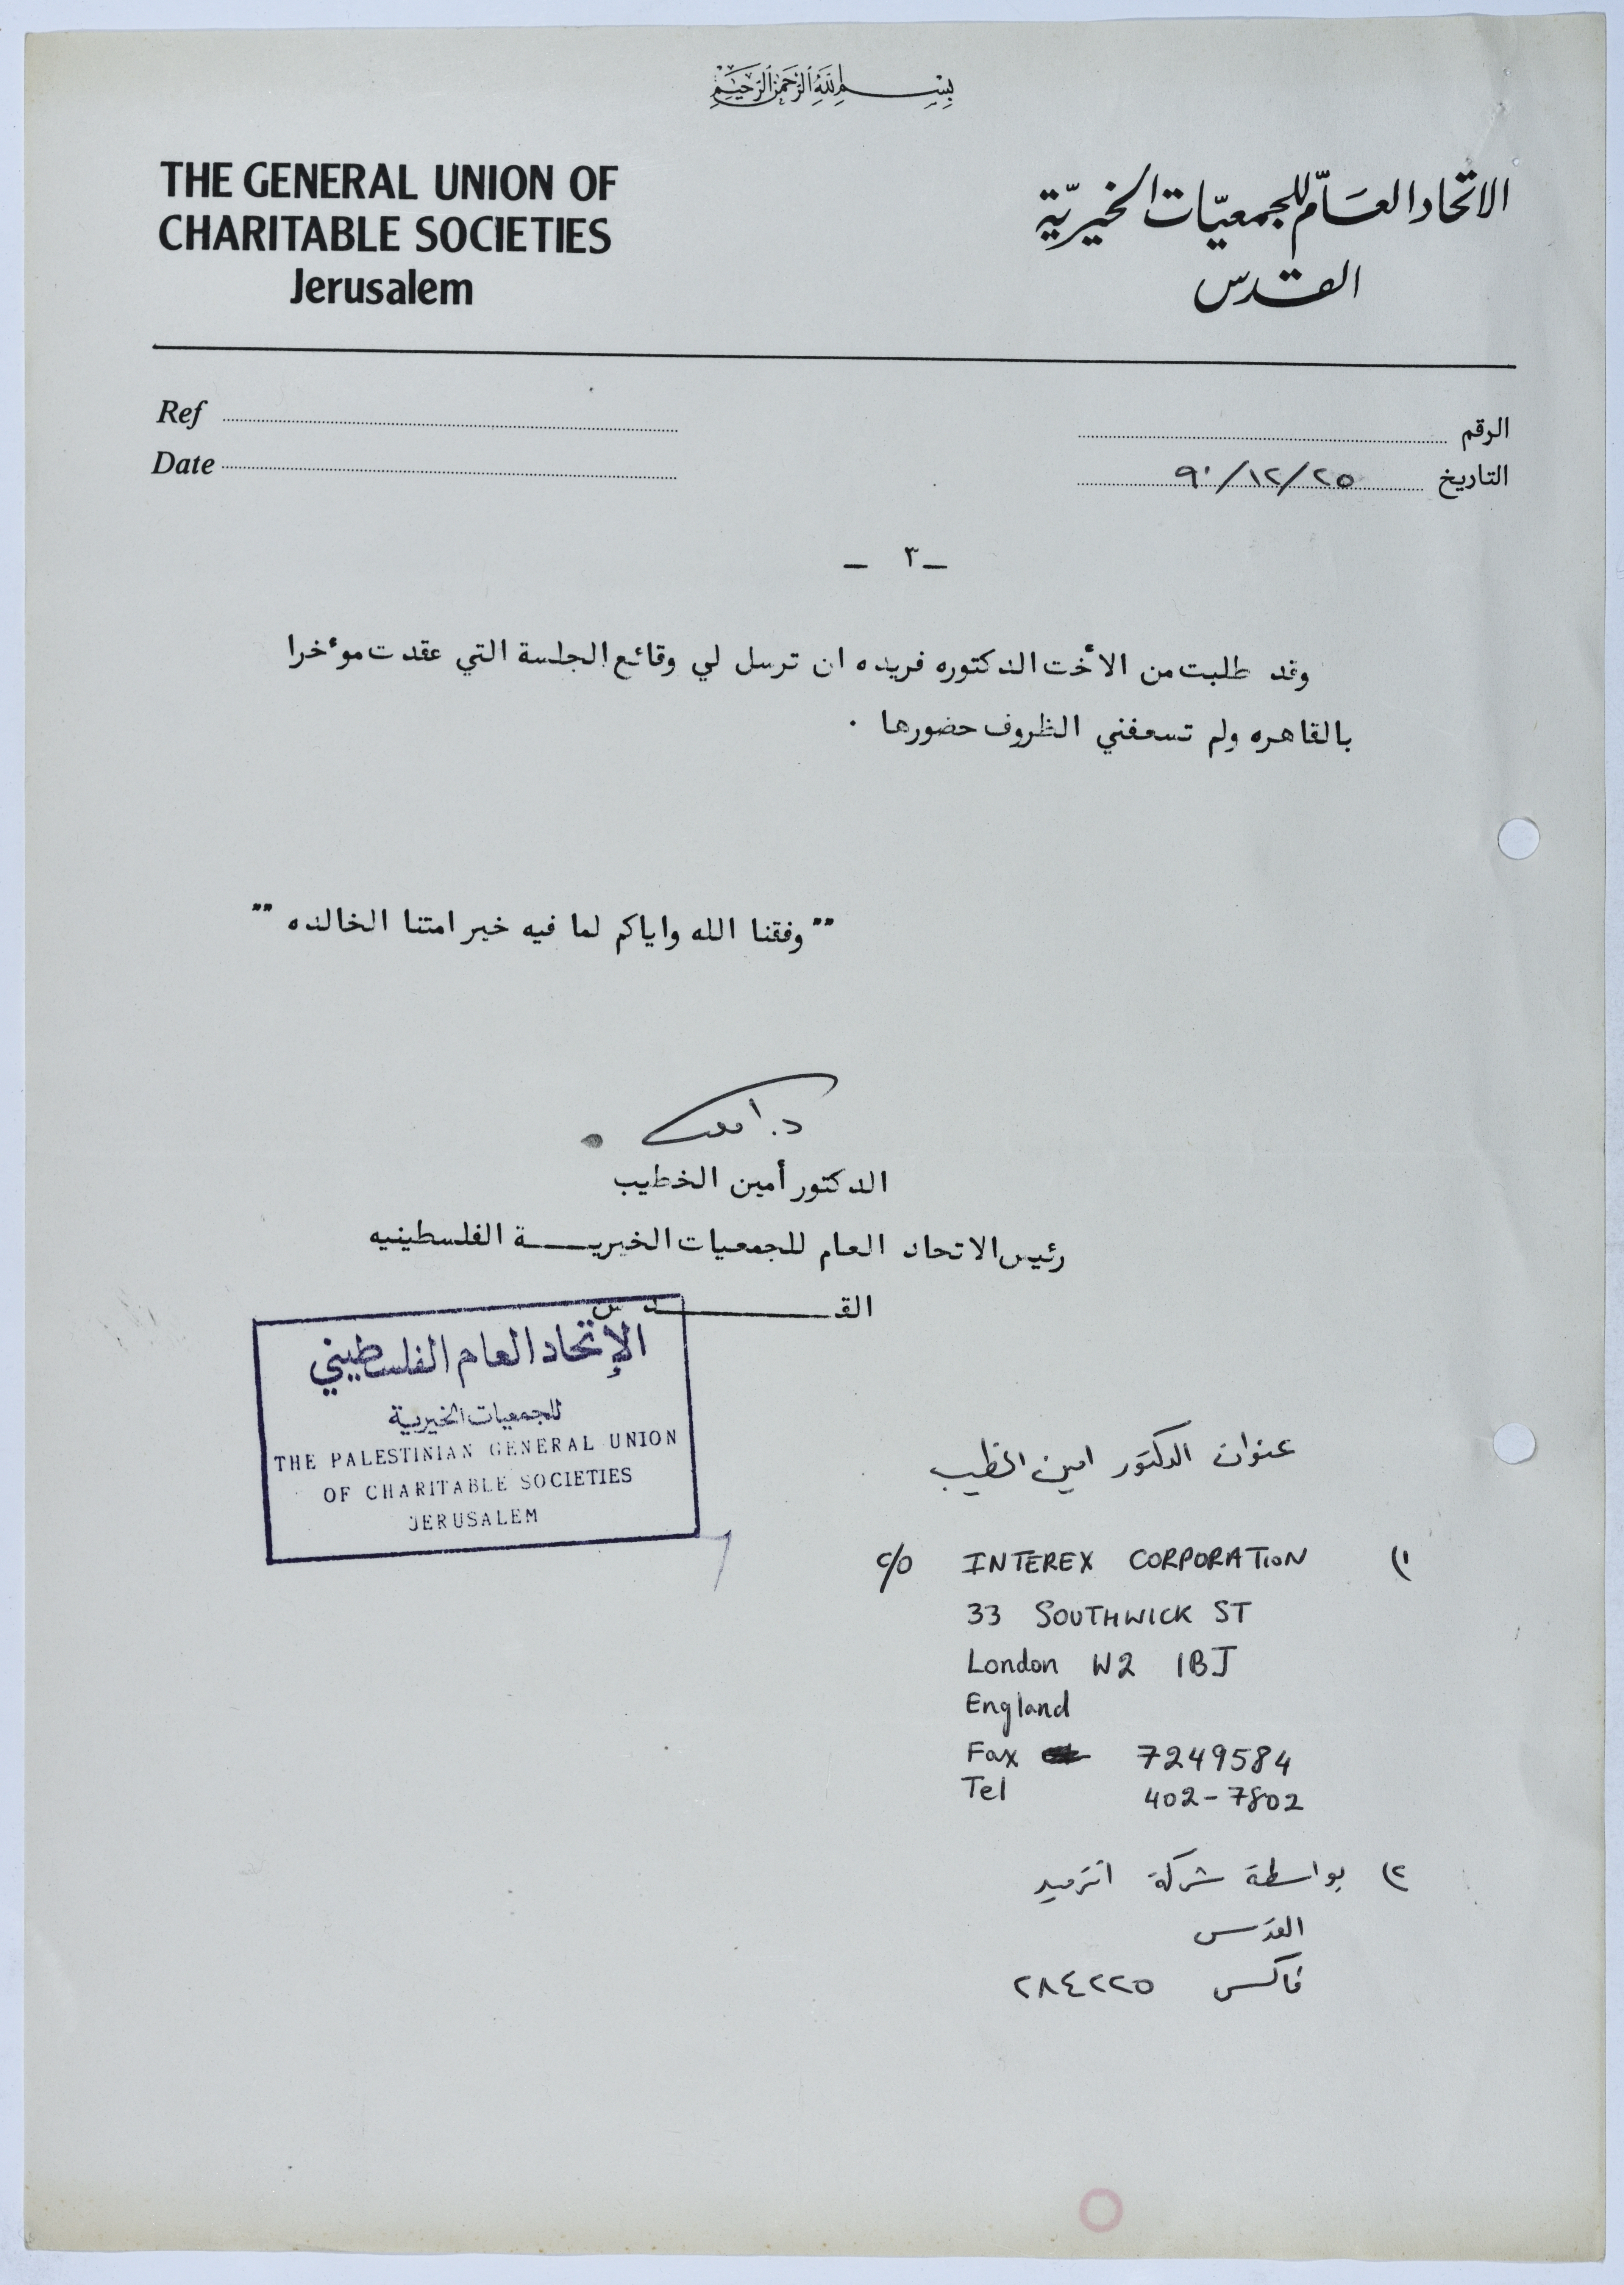 بسم الله الرحمن الرحيم
THE GENERAL UNION OF
CHARITABLE SOCIETIES
Jerusalem
الاتحاد العام للجمعيات الخيرية
القدس
Ref
Date
الرقم
التاريخ ٩٠/١٢/٢٥
ـ ٣ ـ
وقد طلبت من الأخت الدكتوره فريده ان ترسل لي وقائع الجلسة التي عقدت موءخرا
بالقاهره ولم تسعفني الظروف حضورها .
"" وفقنا الله واياكم لما فيه خير امتنا الخالده ""
الدكتور أمين الخطيب
رئيس الاتحاد العام للجمعيات الخيريــــة الفلسطينيه
القــــــدس
الإتحاد العام الفلسطيني
للجمعيات الخيرية
THE PALESTINIAN GENERAL UNION
OF CHARITABLE SOCIETIES
JERUSALEM
عنوان الدكتور امين الخطيب
١) c/o INTEREX CORPORATION
33 SOUTHWICK ST
London W2 1BJ
England
Fax 7249584
Tel 402-7802
٢) بواسطة شركة انترميد
القدس
فاكس ٢٨٤٢٢٥